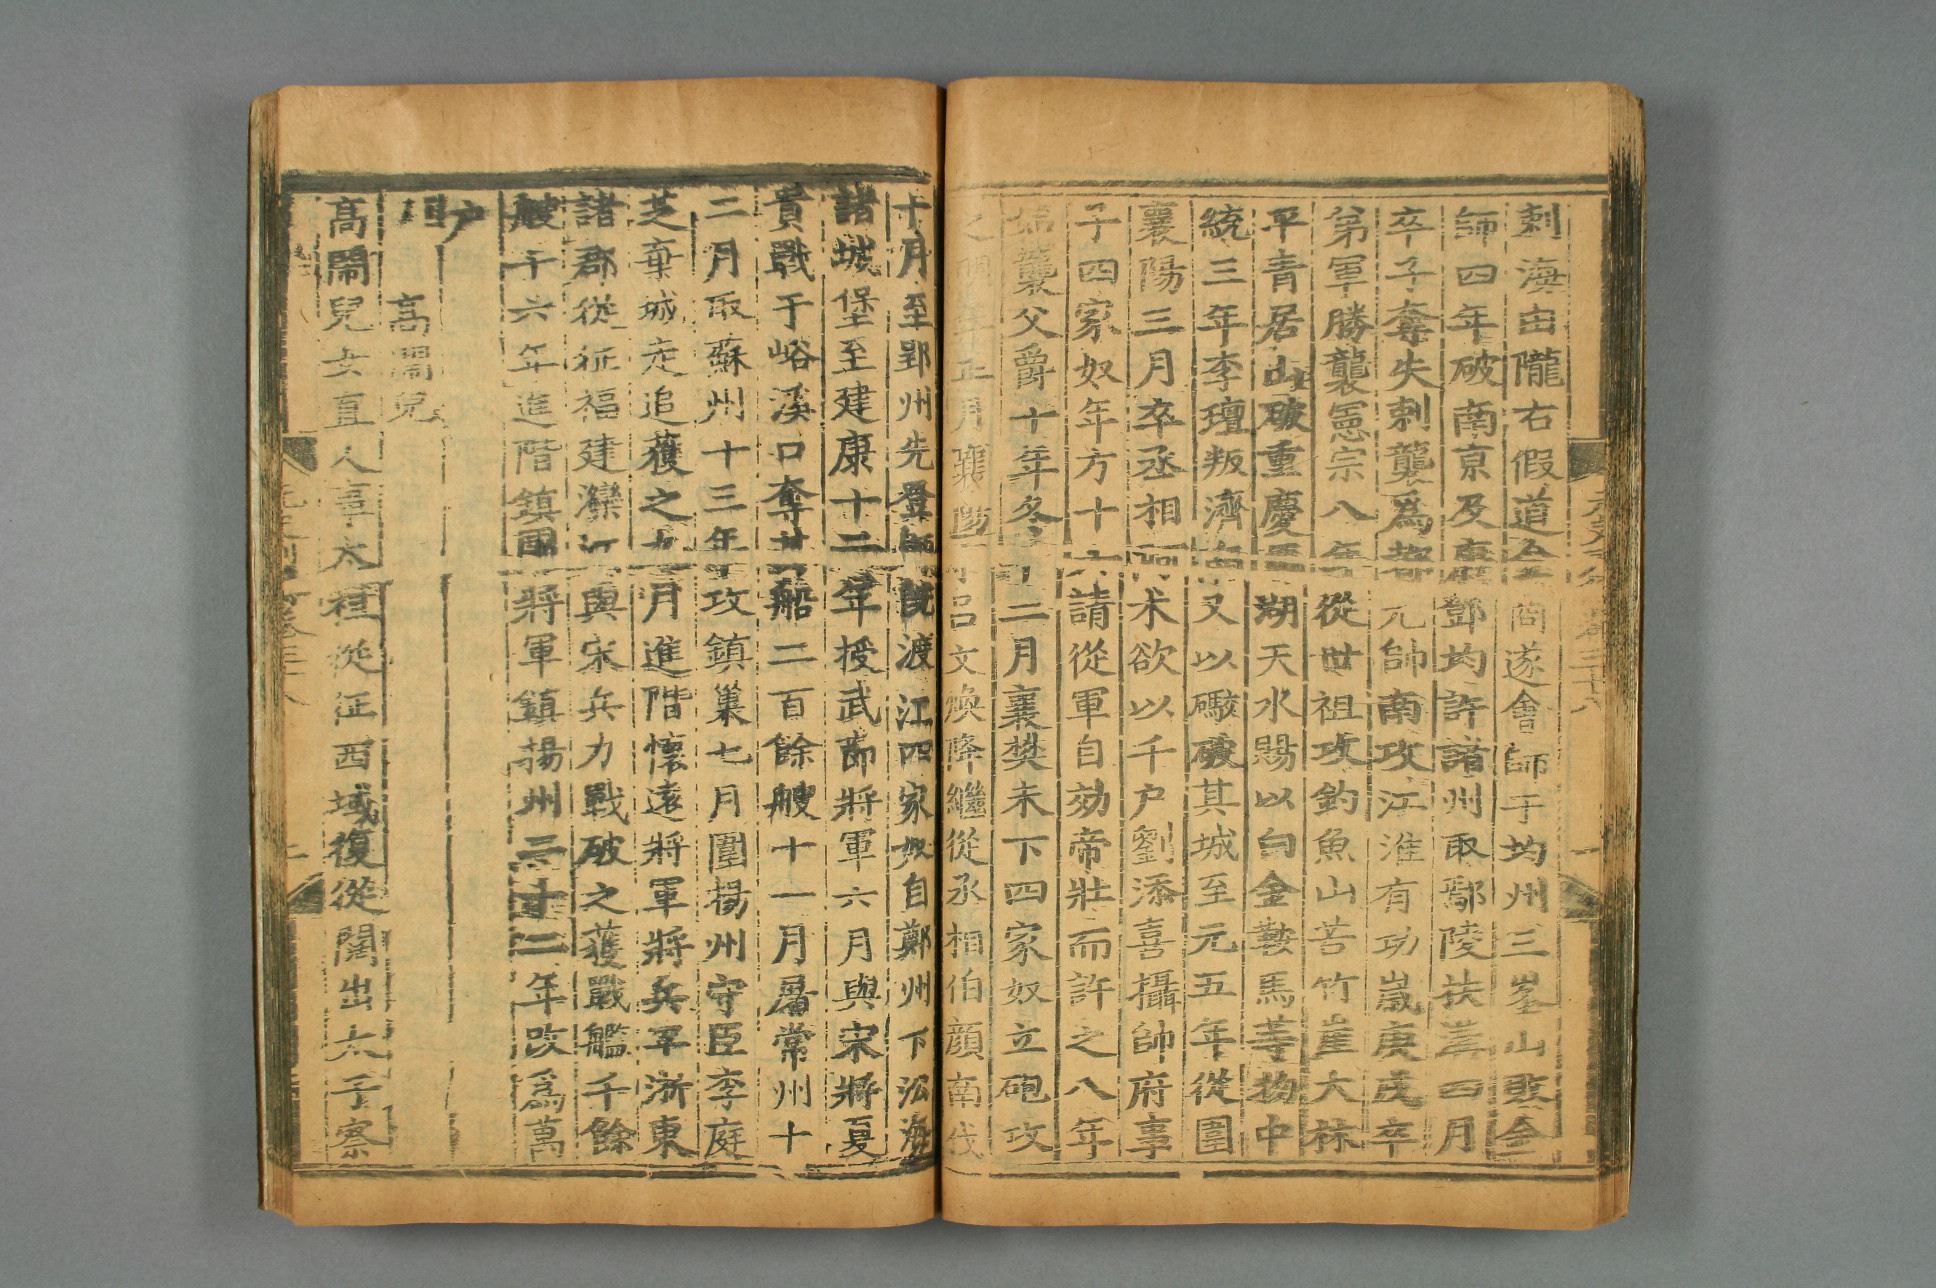 刺海由隴右假道金商遂會師于均州三峯山敗金
師四年破南京及唐鄧均許諸州取鄢陵扶溝四月
卒子奪失剌襲爲
元帥南攻江淮有功歲庚戌卒
弟軍勝襲憲宗八年從世祖攻釣魚山苦竹崖大林
平青居山破重慶
湖天水賜以白金鞍馬等物中
統三年李璮叛濟南又以礮破其城至元五年從圍
襄陽三月卒丞相阿朮欲以千戶劉添喜攝帥府事
子四家奴年方十
請從軍自効帝壯而許之八年
襲父爵十年冬十二月襄樊未下四家奴立砲攻
之明年正月襄陽
呂文煥降繼從丞相伯顔南伐
十月至郢州先登師
旣渡江四家奴自鄭州下沿海
諸城堡至建康十二年授武節將軍六月與宋將夏
貴戰于峪溪口奪其船二百餘艘十一月屠常州十
二月取蘇州十三年攻鎮巢七月圍揚州守臣李庭
芝棄城走追獲之九月進階懷遠將軍將兵平浙東
諸郡從征福建灤江與宋兵力戰破之獲戰艦千餘
艘十六年進階鎮國將軍鎮揚州二十二年改爲萬
户
高鬧兒
高鬧兒女直人事太祖從征西域復從闊出太子察